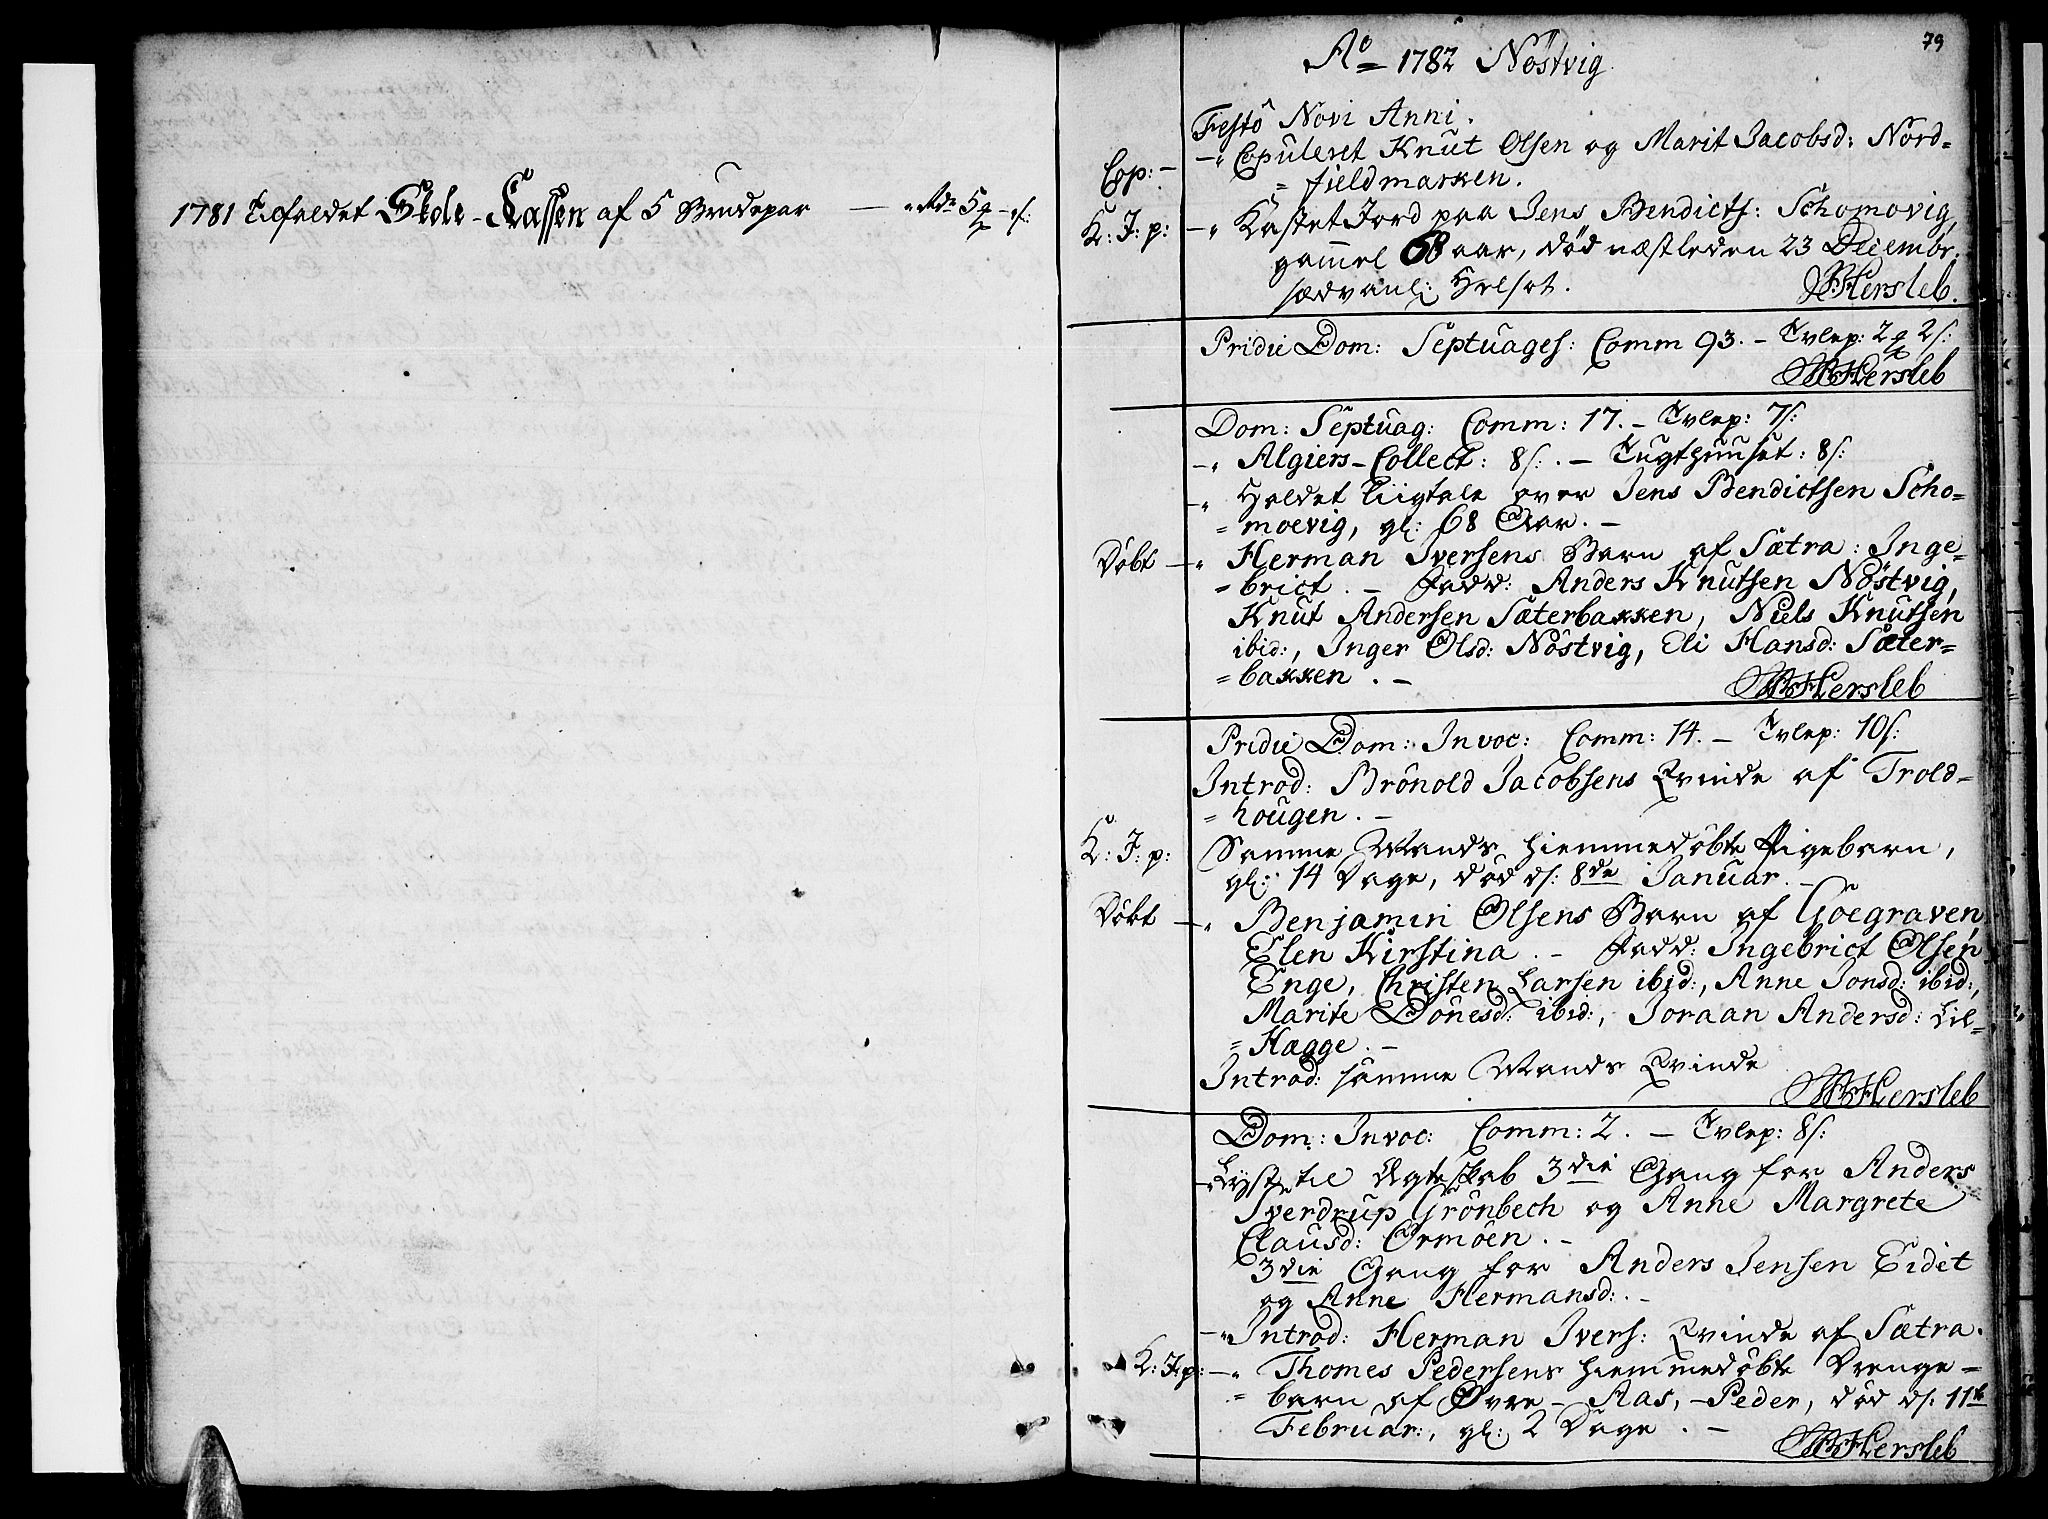 1781 Tilfaldet Skole-Cassen af 5 Brudepar
79
Ao 1782 Nöstvig
Festo Novi Anni.
Cop: Copuleret Knut Olsen og Marit Jacobsd: Nord=
=fieldmarken.
K: J: p: Kastet Jord paa Jens Bendictss: Schomovig,
gammel 68 aar, död næstleden 23 Decembr.
sædvanl: Helsot.
Hersleb.
Pridie Dom: Septuages: Comm 93. – Tvlep: 2 2s:
Hersleb
Dom: Septuag: Comm: 17. – Tvlep: 7s:
–" Algiers-Collect: 8s: . – Tugthuuset: 8s:
–" Holdet Liigtale over Jens Bendictsen Scho=
=moevig, gl: 68 Aar. –
Döbt –" Herman Iversens Barn af Sætra: Inge=
=brict. – Fadd: Anders Knutsen Nöstvig,
Knut Andersen Sæterbakken, Niels Knutsen
ibid:, Inger Olsd: Nöstvig, Eli Hansd: Sæter=
=bakken. –
Hersleb
Pridie Dom: Invoc: Comm: 14. – Tvlep: 10s:
Introd: Brönold Jacobsens Qvinde af Trold=
=hougen. –
K: J: p: Samme Mands hiemmedöbte Pigebarn,
gl: 14 Dage, död d: 8de Januar. –
Döbt –" Benjamin Olsens Barn af Goegraven,
Elen Kirstina. – Fadd: Ingebrict Olsen
Enge, Christen Larsen ibid:, Anne Jonsd: ibid:,
Marite Dönesd: ibid:, Joraan Andersd: Lil=
=Hægge. –
Introd: samme Mands Qvinde
Hersleb
Dom: Invoc: Comm: 2. – Tvlep: 8s:
Lyst til Ægteskab 3die Gang for Anders
Sverdrup Grönbech og Anne Margrete
Clausd: Ormöen. –
3die Gang for Anders Jensen Eidet
og Anne Hermansd: . –
–" Introd: Herman Ivers: Qvinde af Sætra.
K: J: p: –" Thomes Pedersens hiemmedöbte Drenge=
=barn af Øvre-Aas, – Peder, död d: 11te
Februar:, gl: 2 Dage. –
Hersleb